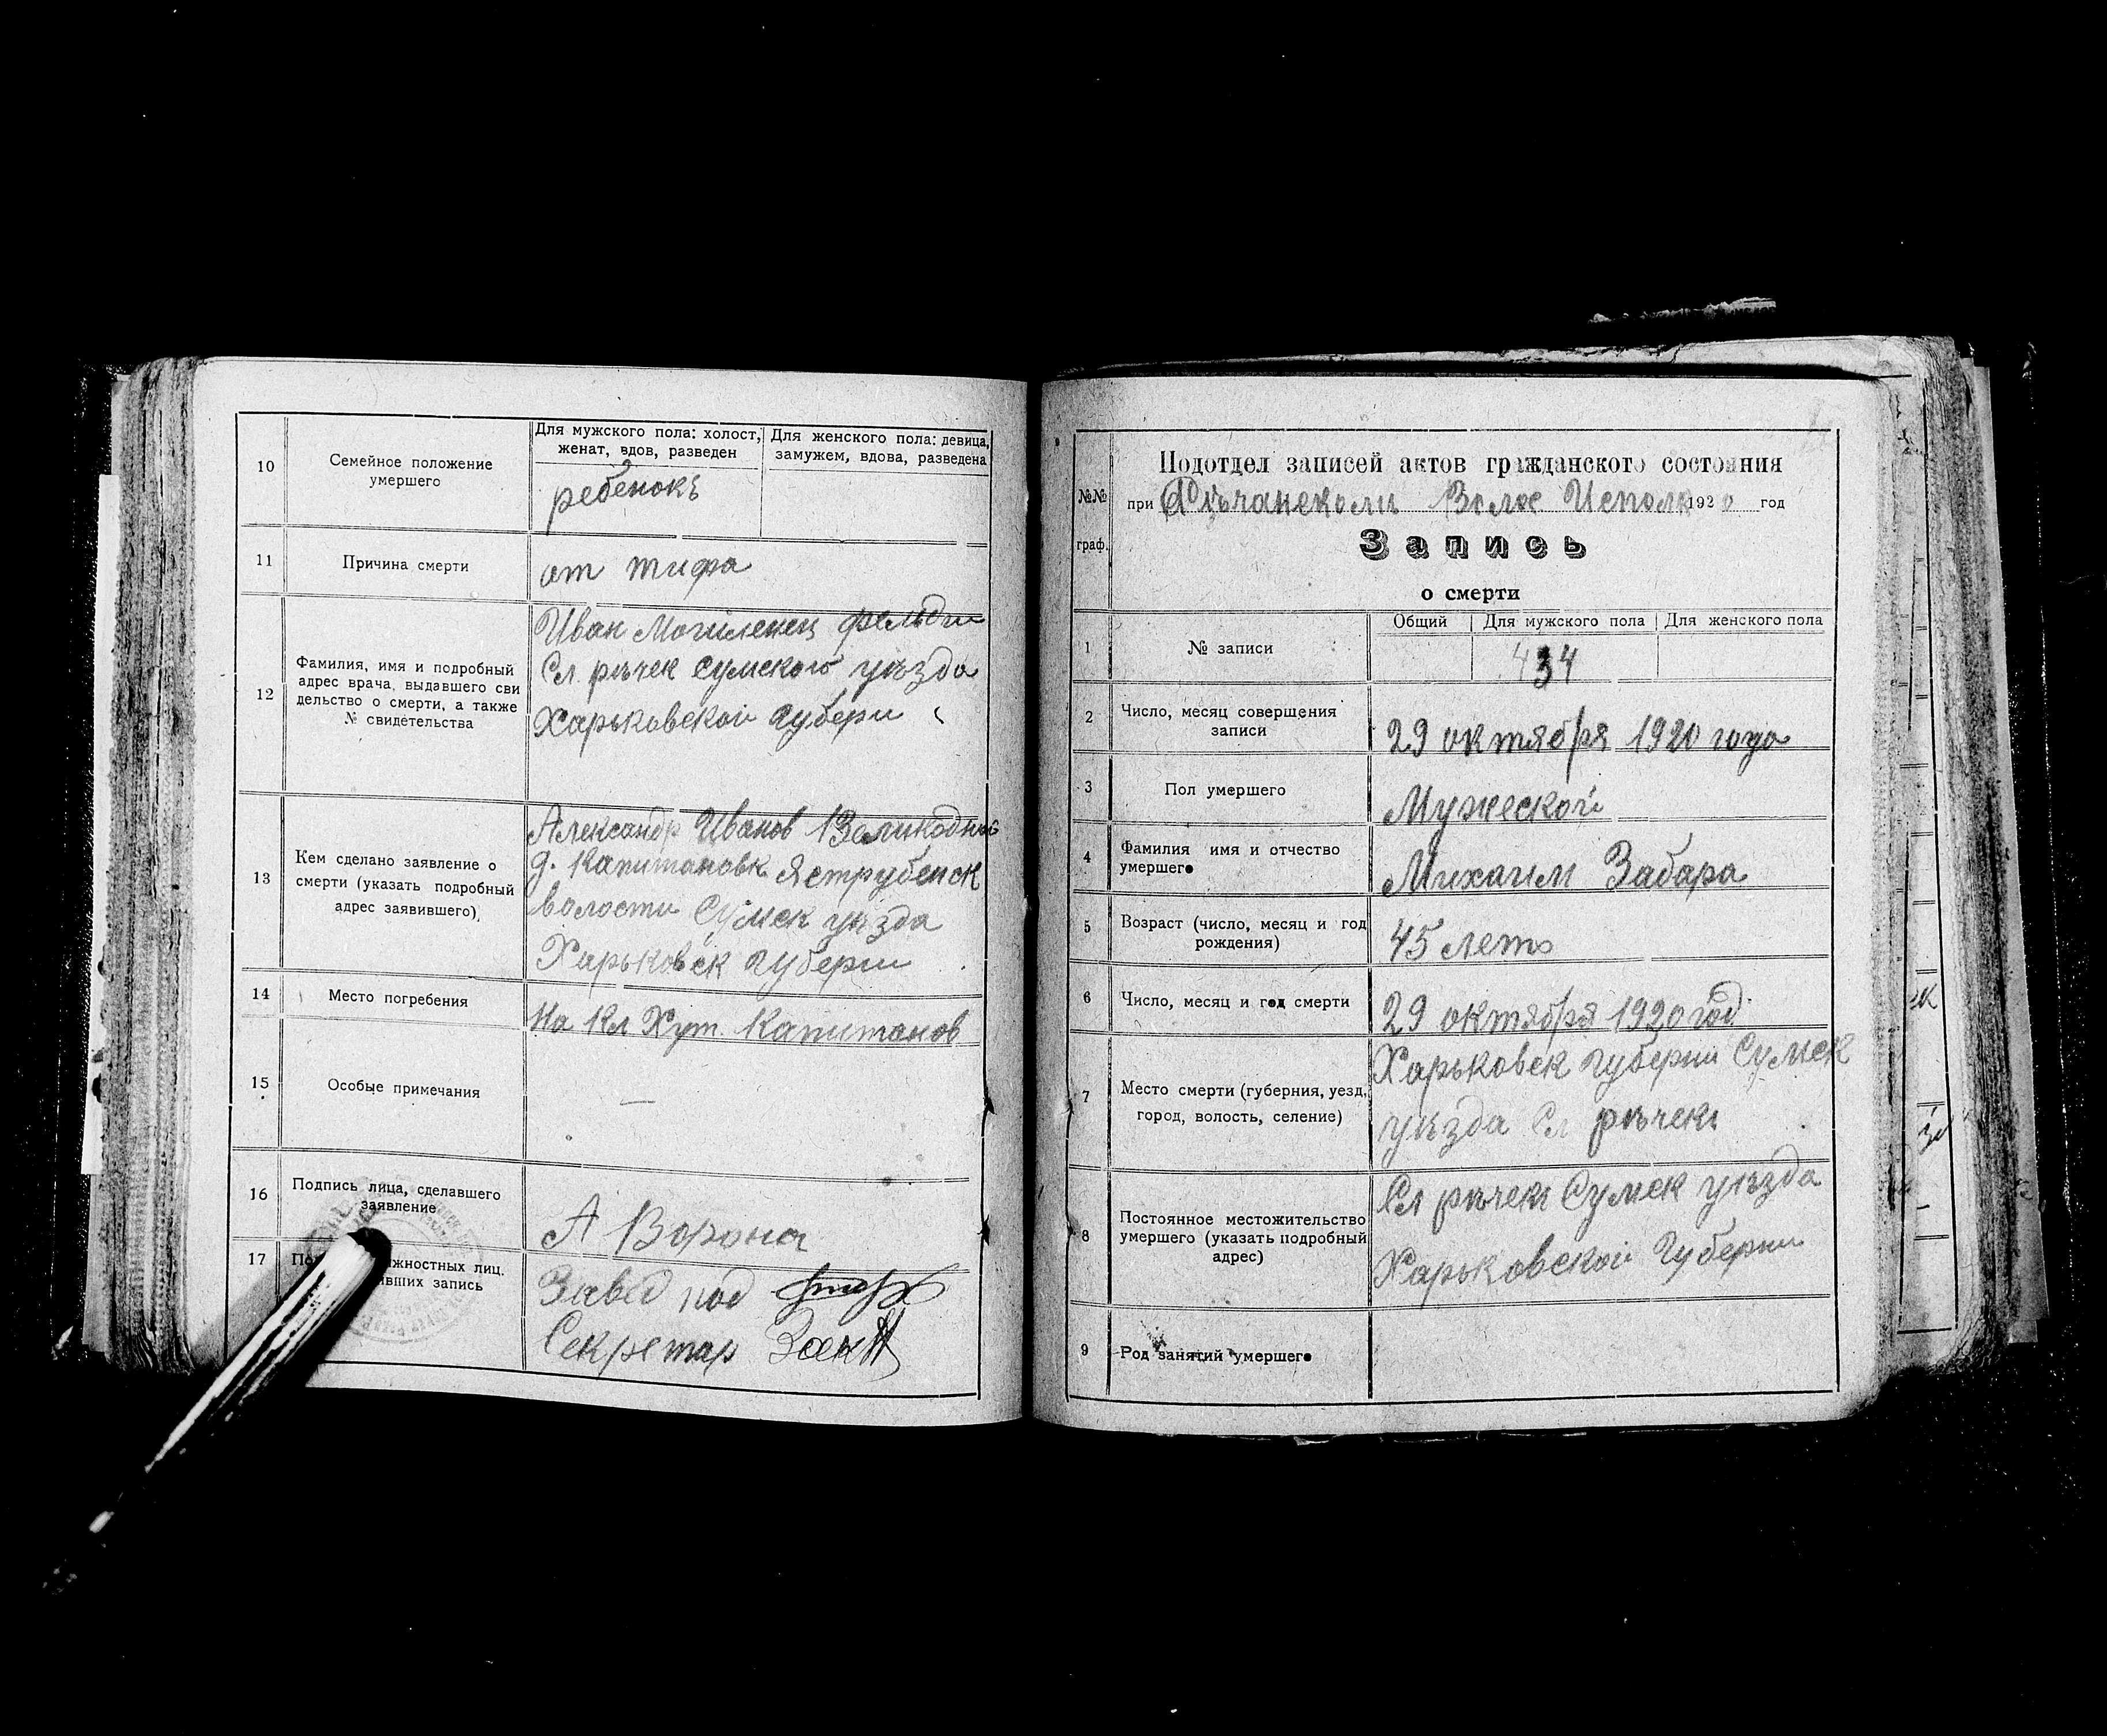 10
Семейное положение
умершего
Для мужского пола: холост,
женат, вдов, разведен
Для женского пола: девица,
замужем, вдова, разведена
ребенокъ
11
Причина смерти
от тифа
12
Фамилия, имя и подробный
адрес врача, выдавшего сви
дельство о смерти, а также
№ свидетельства
Иван Могиленец фельдш
Сл. рѣчек Сумского уѣзда
Харьковской губерн
13
Кем сделано заявление о
смерти (указать подробный
адрес заявившего)
Александр Иванов Великодный
д. Капитановк Яструбенск
волости Сумск уѣзда
Харьковск губерни
14
Место погребения
На Кл Хут. Капитанов
15
Особые примечания
—
16
Подпись лица, сделавшего
заявление
А Ворона
17
жностных лиц.
ивших запись
Завед под
Секретар
№№
граф.
Подотдел записей актов гражданского состояния
при Рѣчанскомъ Волос Исполк 1920 год
Запись
о смерти
1
№ записи
Общий
Для мужского пола
Для женского пола
434
2
Число, месяц совершения
записи
29 октября 1920 года
3
Пол умершего
Мужеской
4
Фамилия имя и отчество
умершего
Михаил Забара
5
Возраст (число, месяц и год
рождения)
45 летъ
6
Число, месяц и год смерти
29 октября 1920 год.
7
Место смерти (губерния, уезд,
город, волость, селение)
Харьковск губерни Сумск
уѣзда Сл рѣчекъ
8
Постоянное местожительство
умершего (указать подробный
адрес)
Сл рѣчекъ Сумск уѣзда
Харьковской губерни
9
Род занятий умершего